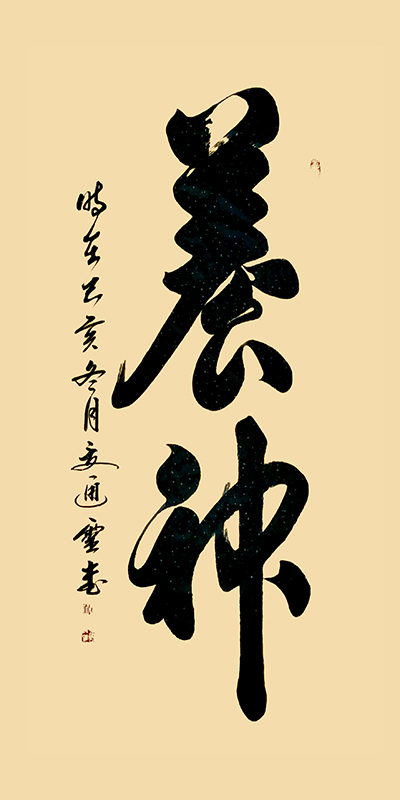 養神
時在己亥冬月妄通靈書